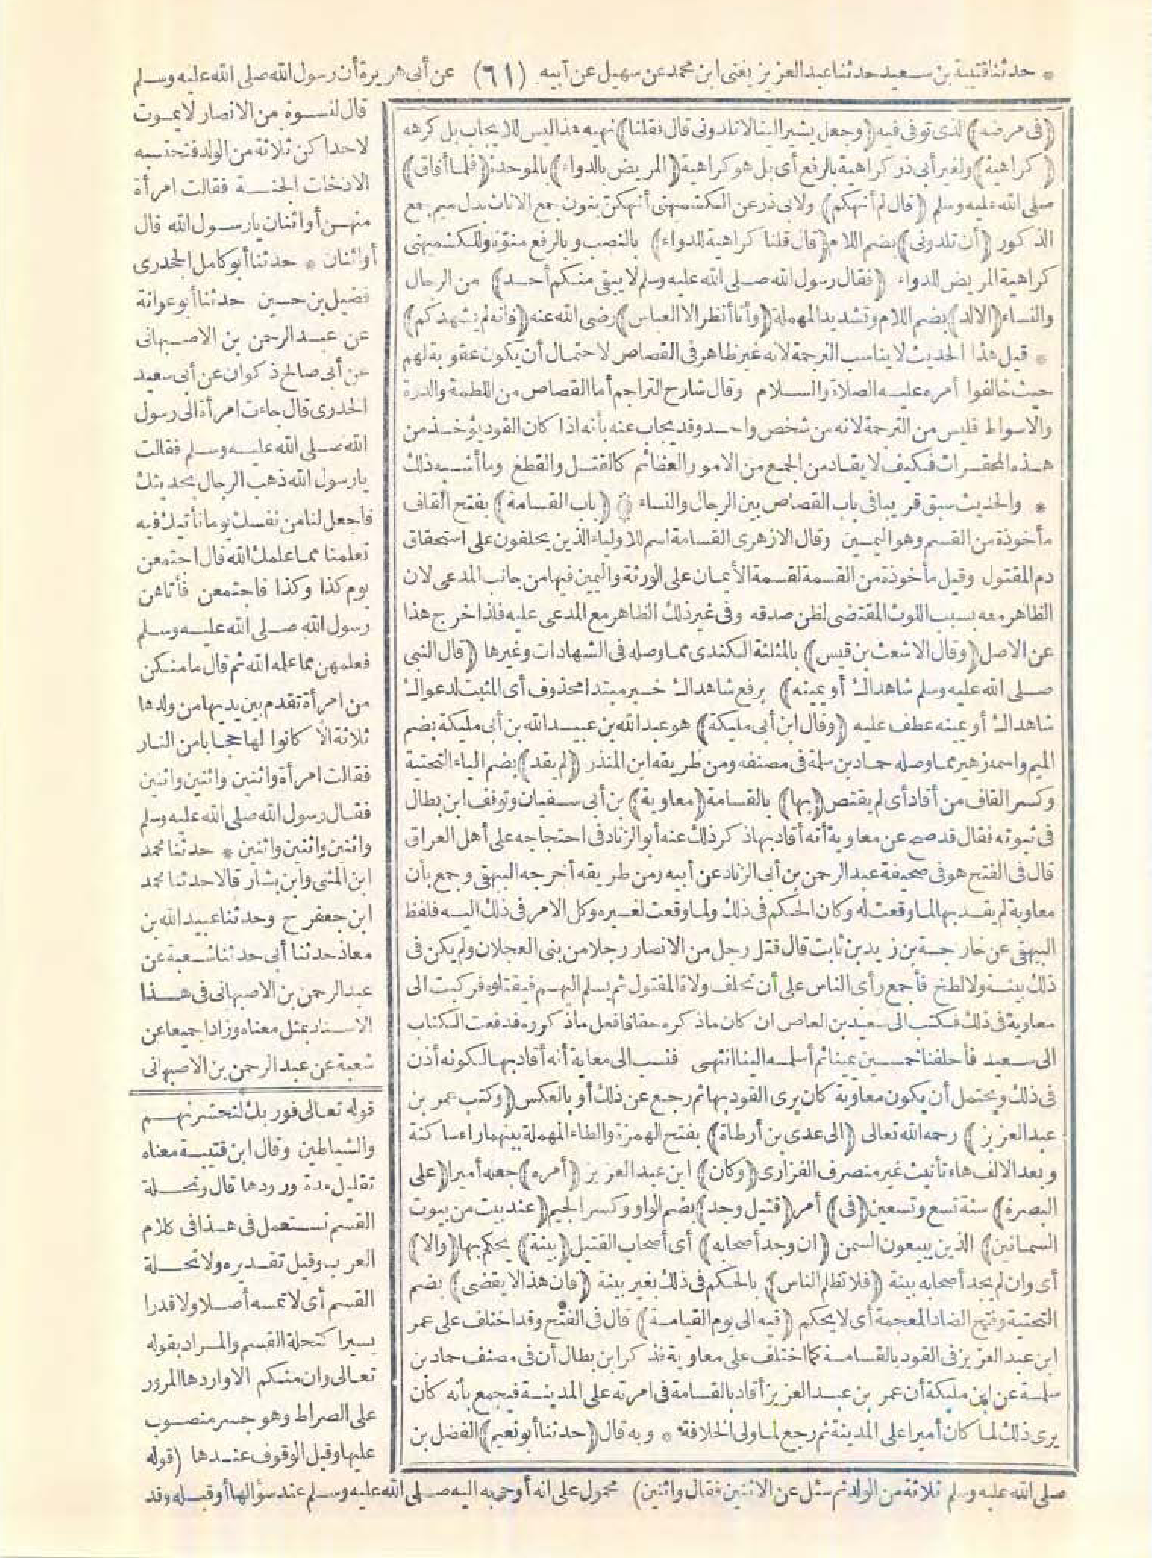 * حدثنا قتيبة بن سعيد حدثنا عبد العزيز يعنى ابن محمد عن سهيل عن أبيه (٦١) عن أبى هريرة أن رسول الله صلى الله عليه وسلم
قال لنسوة من الانصار لا يموت
لاحدا كن ثلاثة من الولد فتحتسبه
الا دخلت الجنة فقالت امرأة
منهن أو اثنان يا رسول الله قال
أو اثنان * حدثنا أبو كامل الجحدرى
فضيل بن حسين حدثنا أبو عوانة
عن عبد الرحمن بن الاصبهانى
عن أبى صالح ذكوان عن أبى سعيد
الخدرى قال جاءت امرأة الى رسول
الله صلى الله عليه وسلم فقالت
يا رسول الله ذهب الرجال بحديثك
فاجعل لنا من نفسك يوما نأتيك فيه
تعلمنا مما علمك الله قال اجتمعن
يوم كذا وكذا فاجتمعن فأتاهن
رسول الله صلى الله عليه وسلم
فعلمهن مما علمه الله ثم قال ما منكن
من امرأة تقدم بين يديها من ولدها
ثلاثة الا كانوا لها حجابا من النار
فقالت امرأة واثنين واثنين واثنين
فقال رسول الله صلى الله عليه وسلم
واثنين واثنين واثنين * حدثنا محمد
ابن المثنى وابن بشار قالا حدثنا محمد
ابن جعفر ح وحدثنا عبيد الله بن
معاذ حدثنا أبى حدثنا شعبة عن
عبد الرحمن بن الاصبهانى فى هذا
الاسناد بمثل معناه وزادا جميعا عن
شعبة عن عبد الرحمن بن الاصبهانى
قوله تعالى فوربك لنحشرنهم
والشياطين وقال ابن قتيبة معناه
تقليل مدة ورودها قال وتحلة
القسم تستعمل فى هذا فى كلام
العرب وقيل تقديره ولا تحلة
القسم أى لا تمسه أصلا ولا قدرا
يسيرا كتحلة القسم والمراد بقوله
تعالى وان منكم الا واردها المرور
على الصراط وهو جسر منصوب
عليها وقيل الوقوف عندها (قوله
(فى مرضه) الذى توفى فيه (وجعل يشير الينا لا تلدونى قال فقلنا) نهيه هذا ليس للايجاب بل كرهه
(كراهية) ولغير أبى ذر كراهية بالرفع أى بل هو كراهية (المريض بالدواء) بالموحدة (فلما أفاق)
صلى الله عليه وسلم (قال ألم أنهكم) ولابى ذر عن الكشميهنى أنهكن بنون جمع الاناث بدل ميم جمع
الذكور (أن تلدونى) بضم اللام (قال قلنا كراهية للدواء) بالنصب وبالرفع منونة وللكشميهنى
كراهية المريض للدواء (فقال رسول الله صلى الله عليه وسلم لا يبقى منكم أحد) من الرجال
والنساء (الا لد) بضم اللام وتشديد المهملة (وأنا أنظر الا العباس) رضى الله عنه (فانه لم يشهدكم)
* قيل هذا الحديث لا يناسب الترجمة لانه غير ظاهر فى القصاص لاحتمال أن يكون عقوبة لهم
حيث خالفوا أمره عليه الصلاة والسلام وقال شارح التراجم أما القصاص من اللطمة والدرة
والاسواط فليس من الترجمة لانه من شخص واحد وقد يجاب عنه بأنه اذا كان القود يؤخذ من
هذه المحقرات فكيف لا يقاد من الجمع من الامور العظائم كالقتل والقطع وما أشبه ذلك
* والحديث سبق قريبا فى باب القصاص بين الرجال والنساء (باب القسامة) بفتح القاف
مأخوذة من القسم وهو اليمين وقال الازهرى القسامة اسم للاولياء الذين يحلفون على استحقاق
دم المقتول وقيل مأخوذة من القسمة لقسمة الأيمان على الورثة واليمين فيها من جانب المدعى لان
الظاهر معه بسبب اللوث المقتضى لظن صدقه وفى غير ذلك الظاهر مع المدعى عليه فلذا خرج هذا
عن الاصل (وقال الاشعث بن قيس) بالمثلثة الكندى مما وصله فى الشهادات وغيرها (قال النبى
صلى الله عليه وسلم شاهداك أو يمينه) برفع شاهداك خبر مبتدا محذوف أى المثبت لدعواك
شاهداك أو يمينه عطف عليه (وقال ابن أبى مليكة) هو عبد الله بن عبيد الله بن أبى مليكة بضم
الميم واسمه زهير مما وصله حماد بن سلمة فى مصنفه ومن طريقه ابن المنذر (لم يقد) بضم الياء التحتية
وكسر القاف من أقاد أى لم يقتص (بها) بالقسامة (معاوية) بن أبى سفيان وتوقف ابن بطال
فى ثبوته فقال قد صح عن معاوية أنه أقاد بها ذكر ذلك عنه أبو الزناد فى احتجاجه على أهل العراق
قال فى الفتح هو فى صحيفة عبد الرحمن بن أبى الزناد عن أبيه ومن طريقه أخرجه البيهقى وجمع بأن
معاوية لم يقد بها لما وقعت له وكان الحكم فى ذلك ولما وقعت لغيره وكل الامر فى ذلك اليه فلفظ
البيهقى عن خارجة بن زيد بن ثابت قال قتل رجل من الانصار رجلا من بنى العجلان ولم يكن فى
ذلك بينة ولا لطخ فأجمع رأى الناس على أن تحلف ولاة المقتول ثم يسلم اليهم فيقتلوه فركبت الى
معاوية فى ذلك فكتب الى سعيد بن العاص ان كان ما ذكره حقا فافعل ما ذكروه فدفعت الكتاب
الى سعيد فأحلفنا خمسين يمينا ثم أسلمه الينا انتهى فنسب الى معاوية أنه أقاد بها لكونه أذن
فى ذلك ويحتمل أن يكون معاوية كان يرى القود بها ثم رجع عن ذلك أو بالعكس (وكتب عمر بن
عبد العزيز) رحمه الله تعالى (الى عدى بن أرطاة) بفتح الهمزة والطاء المهملة بينهما راء ساكنة
وبعد الالف هاء تأنيث غير منصرف الفزارى (وكان) ابن عبد العزيز (أمره) جعله أميرا (على
البصرة) سنة تسع وتسعين (فى) أمر (قتيل وجد) بضم الواو وكسر الجيم (عند بيت من بيوت
السمانين) الذين يبيعون السمن (ان وجد أصحابه) أى أصحاب القتيل (بينة) يحكم بها (والا)
أى وان لم يجد أصحابه بينة (فلا تظلم الناس) بالحكم فى ذلك بغير بينة (فان هذا لا يقضى) بضم
التحتية وفتح الضاد المعجمة أى لا يحكم (فيه الى يوم القيامة) قال فى الفتح وقد اختلف على عمر
ابن عبد العزيز فى القود بالقسامة كما اختلف على معاوية فذكر ابن بطال أن فى مصنف حماد بن
سلمة عن ابن أبى مليكة أن عمر بن عبد العزيز أقاد بالقسامة فى امرته على المدينة فيجمع بأنه كان
يرى ذلك لما كان أميرا على المدينة ثم رجع لما ولى الخلافة * وبه قال (حدثنا أبو نعيم) الفضل بن
صلى الله عليه وسلم ثلاثة من الولد ثم سئل عن الاثنين فقال واثنين) محمول على أنه أوحى به اليه صلى الله عليه وسلم عند سؤالها أو قبله وقد